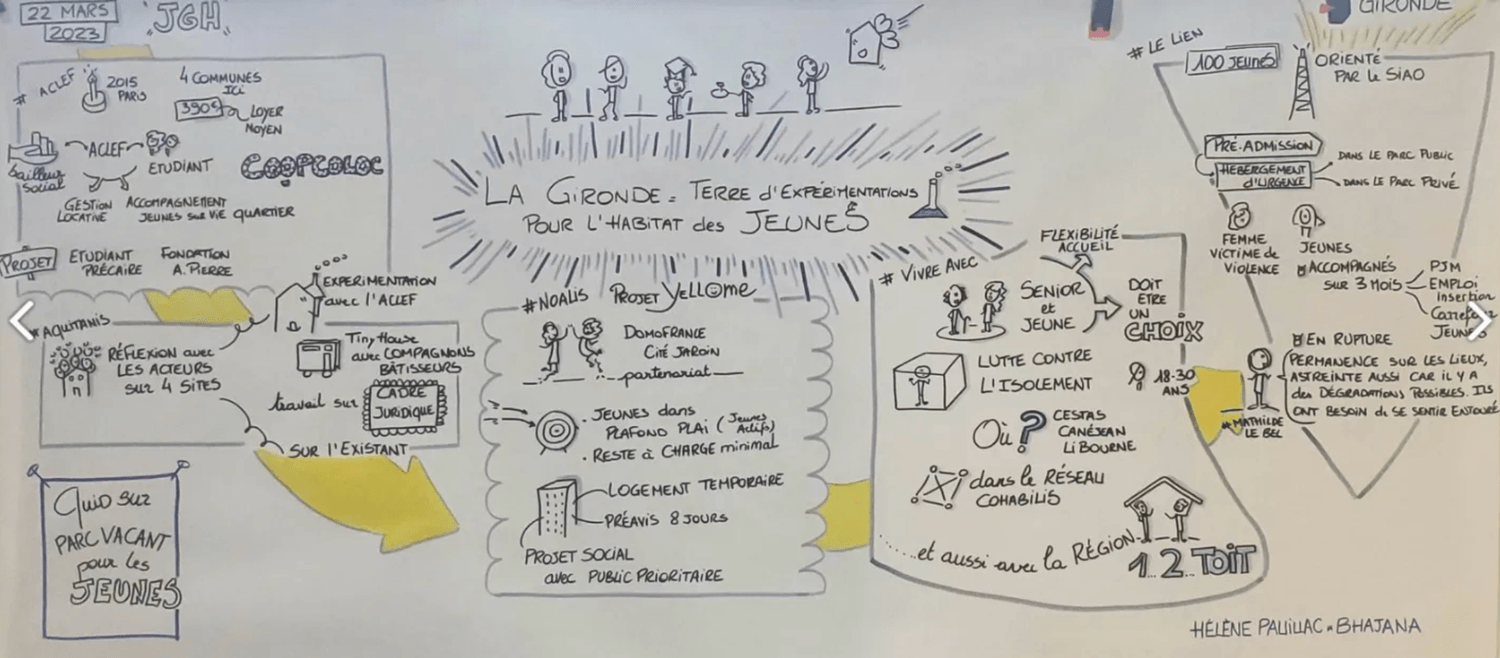 22 MARS
2023
JGH
GIRONDE
# ACLEF
2015
PARIS
4 COMMUNES
ICI
390€
LOYER
MOYEN
bailleur
social
ACLEF
ETUDIANT
COOPCOLOC
GESTION
LOCATIVE
ACCOMPAGNEMENT
JEUNES sur VIE QUARTIER
PROJET
ETUDIANT
PRÉCAIRE
FONDATION
A. PIERRE
EXPERIMENTATION
avec l'ACLEF
# AQUITANIS
RÉFLEXION avec
LES ACTEURS
sur 4 SITES
Tiny House
avec COMPAGNONS
BÂTISSEURS
travail sur
CADRE
JURIDIQUE
SUR l'EXISTANT
QUID SUR
PARC VACANT
pour les
JEUNES
LA GIRONDE = TERRE d'EXPÉRIMENTATIONS
POUR L'HABITAT des JEUNES
# NOALIS
PROJET Yellome
DOMOFRANCE
CITÉ JARDIN
partenariat
. JEUNES dans
PLAFOND PLAI (Jeunes
Actifs)
. RESTE à CHARGE minimal
LOGEMENT TEMPORAIRE
PRÉAVIS 8 JOURS
PROJET SOCIAL
avec PUBLIC PRIORITAIRE
# VIVRE AVEC
FLEXIBILITÉ
ACCUEIL
SENIOR
et
JEUNE
DOIT
ETRE
UN
CHOIX
LUTTE CONTRE
L'ISOLEMENT
18-30
ANS
Où ?
CESTAS
CANÉJEAN
LIBOURNE
dans le RÉSEAU
COHABILIS
.....et aussi avec la RÉGION
1.. 2.. TOIT
# LE LIEN
100 JEUNES
ORIENTÉ
PAR le SIAO
PRÉ-ADMISSION
HÉBERGEMENT
d'URGENCE
DANS LE PARC PUBLIC
DANS LE PARC PRIVÉ
FEMME
VICTIME de
VIOLENCE
JEUNES
ACCOMPAGNÉS
SUR 3 MOIS
PJM
EMPLOI
insertion
JEUNES
EN RUPTURE
PERMANENCE SUR LES LIEUX,
ASTREINTE AUSSI CAR IL Y A
des DÉGRADATIONS POSSIBLES. ILS
ONT BESOIN de SE SENTIR ENTOURÉ
# MATHILDE
LE BEL
HÉLÈNE PAUILLAC - BHAJANA